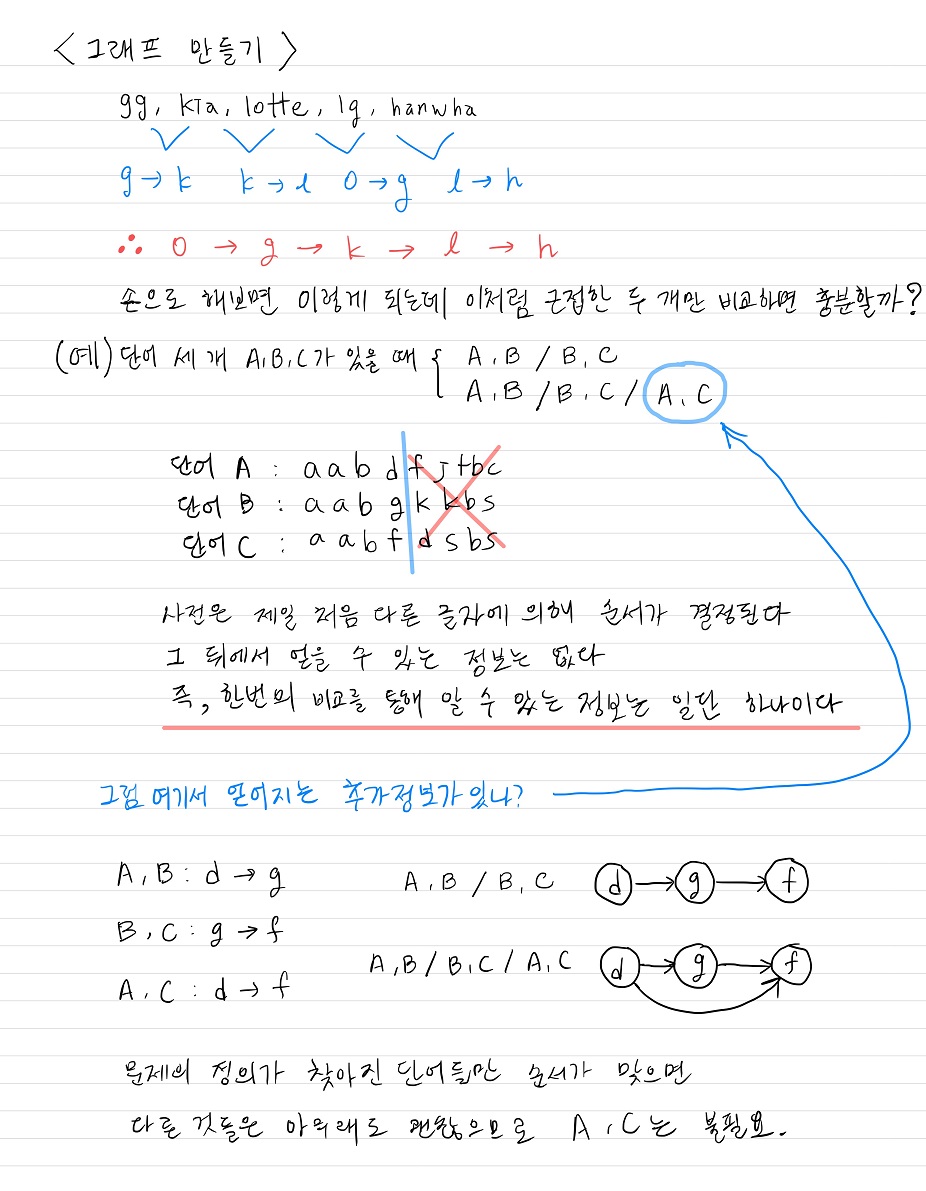 <그래프 만들기>
gg, kia, lotte, lg, hanwha
g→k k→l o→g l→h
∴ o → g → k → l → h
손으로 해보면 이렇게 되는데 이처럼 근접한 두 개만 비교하면 충분할까?
(예) 단어 세 개 A,B,C가 있을 때 { A,B / B,C
A,B / B,C / A,C
단어 A : a a b d f j t b c
단어 B : a a b g k k b s
단어 C : a a b f d s b s
사전은 제일 처음 다른 글자에 의해 순서가 결정된다
그 뒤에서 얻을 수 있는 정보는 없다
즉, 한번의 비교를 통해 알 수 있는 정보는 일단 하나이다
그럼 여기서 얻어지는 추가정보가 있나?
A,B : d → g A,B / B,C d→g→f
B,C : g → f
A,B / B,C / A,C d→g→f
A,C : d → f
문제의 정의가 찾아진 단어들만 순서가 맞으면
다른 것들은 아무래도 괜찮으므로 A,C는 불필요.